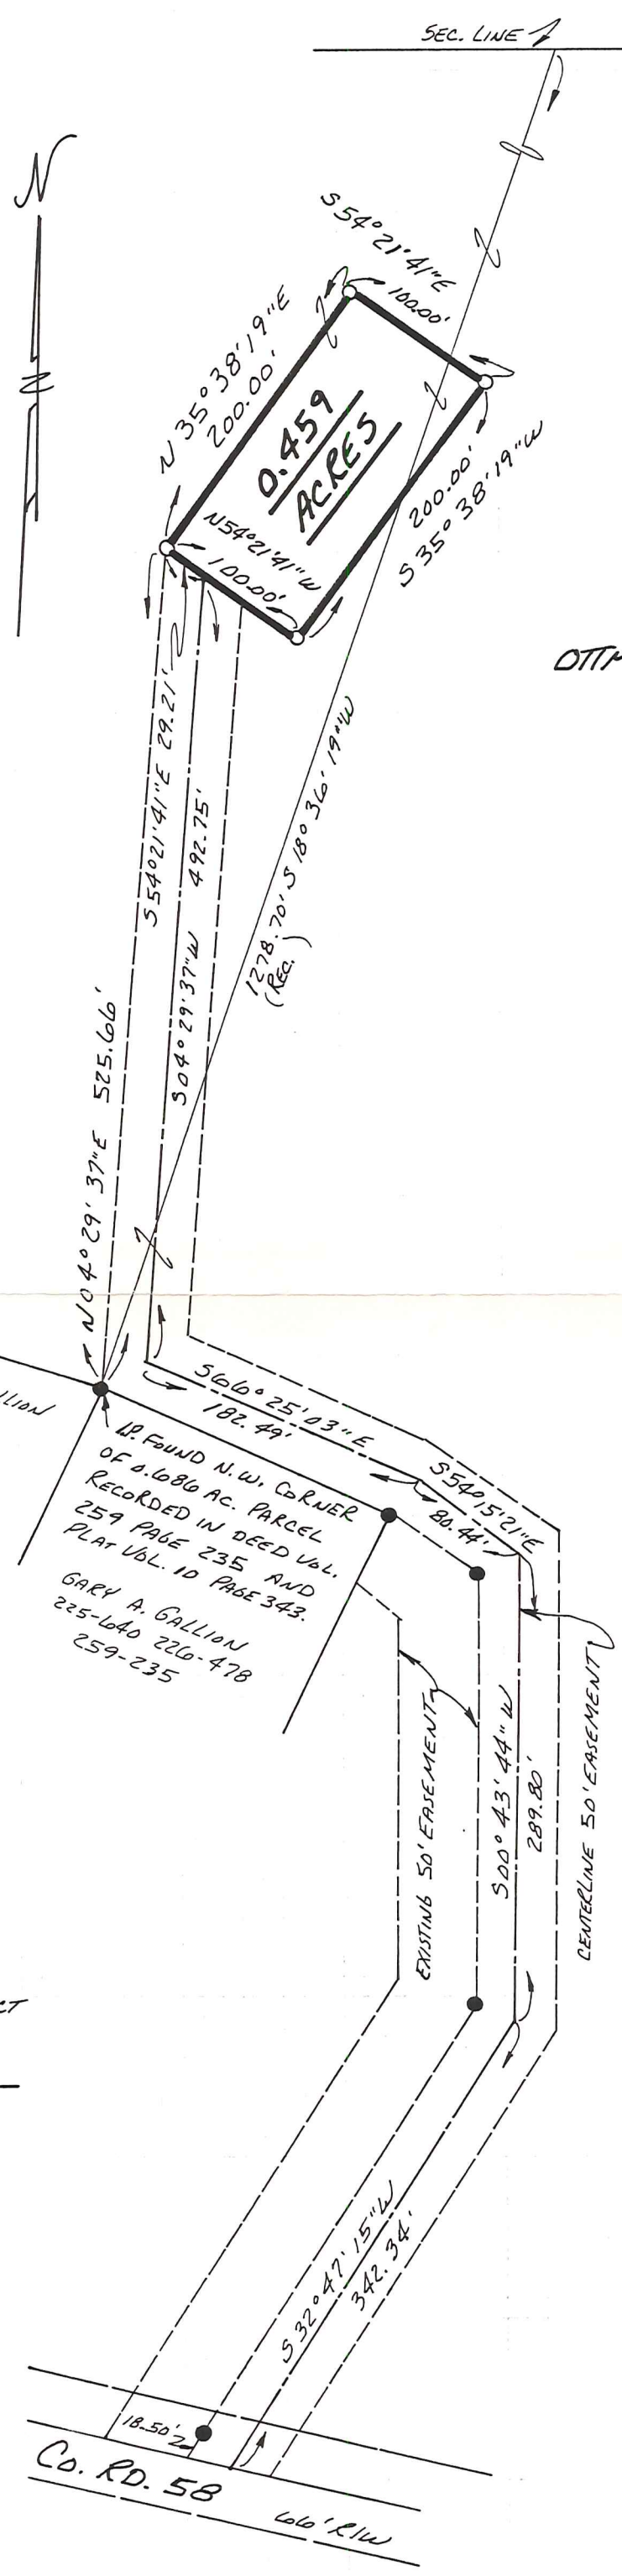 SEC. LINE
N
S 54° 21' 41" E
100.00'
N 35° 38' 19" E
200.00'
0.459
ACRES
200.00'
S 35° 38' 19" W
N 54° 21' 41" W
100.00'
S 54° 21' 41" E 29.21'
S 04° 29' 37" W 492.75'
1278.70' S 18° 36' 19" W
(REC.)
N 04° 29' 37" E 525.66'
S 66° 25' 03" E
182.49'
S 54° 15' 21" E
80.44'
I.P. FOUND N.W. CORNER
OF 0.686 AC. PARCEL
RECORDED IN DEED VOL.
259 PAGE 235 AND
PLAT VOL. 10 PAGE 343.
GARY A. GALLION
225-640 226-478
259-235
EXISTING 50' EASEMENT
S 00° 43' 44" W
289.80'
CENTERLINE 50' EASEMENT
S 32° 47' 15" W
342.34'
18.50'
CO. RD. 58
66' R/W